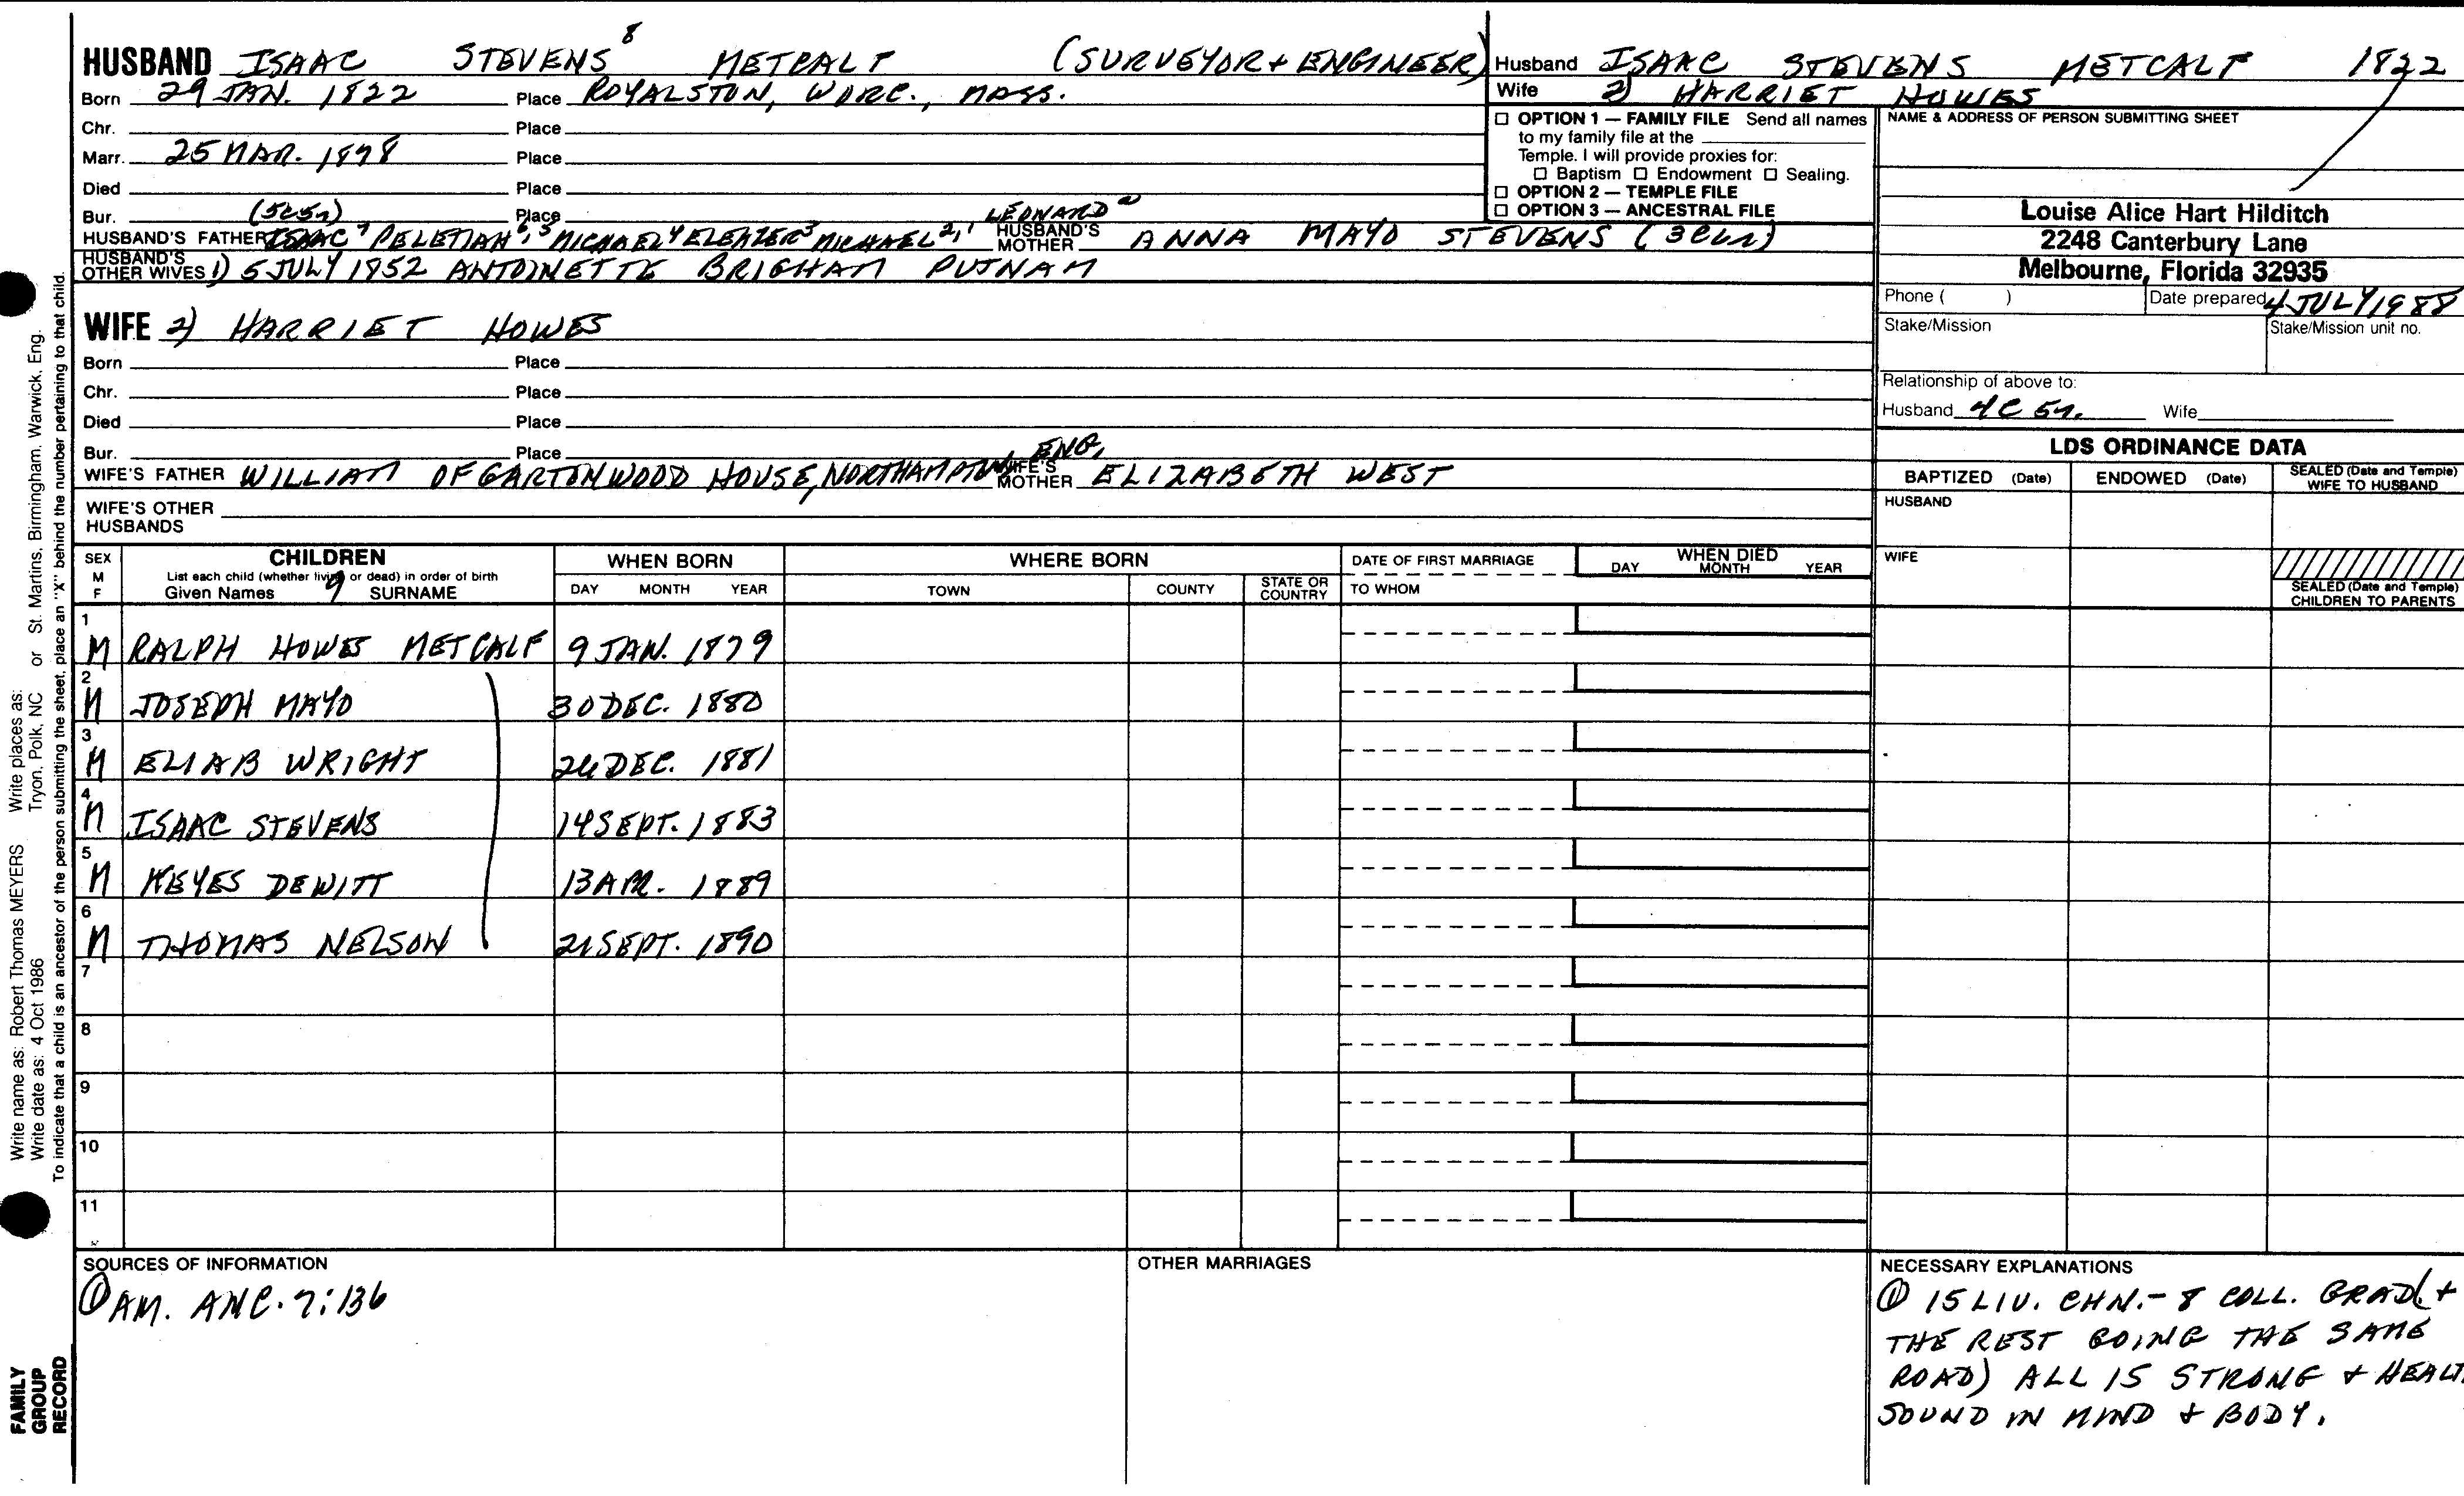 HUSBAND ISAAC STEVENS 8 METCALF (SURVEYOR + ENGINEER)
Born 29 JAN. 1822 Place ROYALSTON, WORC., MASS.
Chr. Place
Marr. 25 MAR. 1878 Place
Died Place
Bur. (5C5n) Place
HUSBAND'S FATHER ISAAC 7 PELETIAH 6,5 MICHAEL 4 ELEAZER 3 MICHAEL 2,1 LEONARD HUSBAND'S MOTHER ANNA MAYO STEVENS
HUSBAND'S OTHER WIVES 1) 5 JULY 1852 ANTOINETTE BRIGHAM PUTNAM
WIFE 2) HARRIET HOWES
Born Place
Chr. Place
Died Place
Bur. Place
WIFE'S FATHER WILLIAM OF GARTONWOOD HOUSE, NORTHAMPTON, ENG. WIFE'S MOTHER ELIZABETH WEST
WIFE'S OTHER HUSBANDS
Husband ISAAC STEVENS METCALF 1822
Wife 2) HARRIET HOWES
☐ OPTION 1 — FAMILY FILE Send all names
to my family file at the
Temple. I will provide proxies for:
☐ Baptism ☐ Endowment ☐ Sealing.
☐ OPTION 2 — TEMPLE FILE
☐ OPTION 3 — ANCESTRAL FILE
NAME & ADDRESS OF PERSON SUBMITTING SHEET
Louise Alice Hart Hilditch
2248 Canterbury Lane
Melbourne, Florida 32935
Phone ( ) Date prepared 4 JULY 1988
Stake/Mission Stake/Mission unit no.
Relationship of above to:
Husband 4C 5n. Wife
LDS ORDINANCE DATA
BAPTIZED (Date) ENDOWED (Date) SEALED (Date and Temple) WIFE TO HUSBAND
HUSBAND
WIFE
SEALED (Date and Temple) CHILDREN TO PARENTS
SEX M F
CHILDREN
List each child (whether living or dead) in order of birth
Given Names 9 SURNAME
WHEN BORN
DAY MONTH YEAR
WHERE BORN
TOWN COUNTY STATE OR COUNTRY
DATE OF FIRST MARRIAGE
TO WHOM
WHEN DIED
DAY MONTH YEAR
1 M RALPH HOWES METCALF 9 JAN. 1879
2 M JOSEPH MAYO 30 DEC. 1880
3 M ELIAB WRIGHT DEC. 1881
4 M ISAAC STEVENS 14 SEPT. 1883
5 M KEYES DEWITT 13 APR. 1889
6 M THOMAS NELSON 21 SEPT. 1890
7
8
9
10
11
SOURCES OF INFORMATION
① AM. ANC. 7:136
OTHER MARRIAGES
NECESSARY EXPLANATIONS
① 15 LIV. CHN. - 8 COLL. GRAD. (+
THE REST GOING THE SAME
ROAD) ALL 15 STRONG + HEALT
SOUND IN MIND + BODY.
Write name as: Robert Thomas MEYERS Write places as: St. Martins, Birmingham, Warwick, Eng.
Write date as: 4 Oct 1986 Tryon, Polk, NC or
To indicate that a child is an ancestor of the person submitting the sheet, place an "X" behind the number pertaining to that child.
FAMILY
GROUP
RECORD